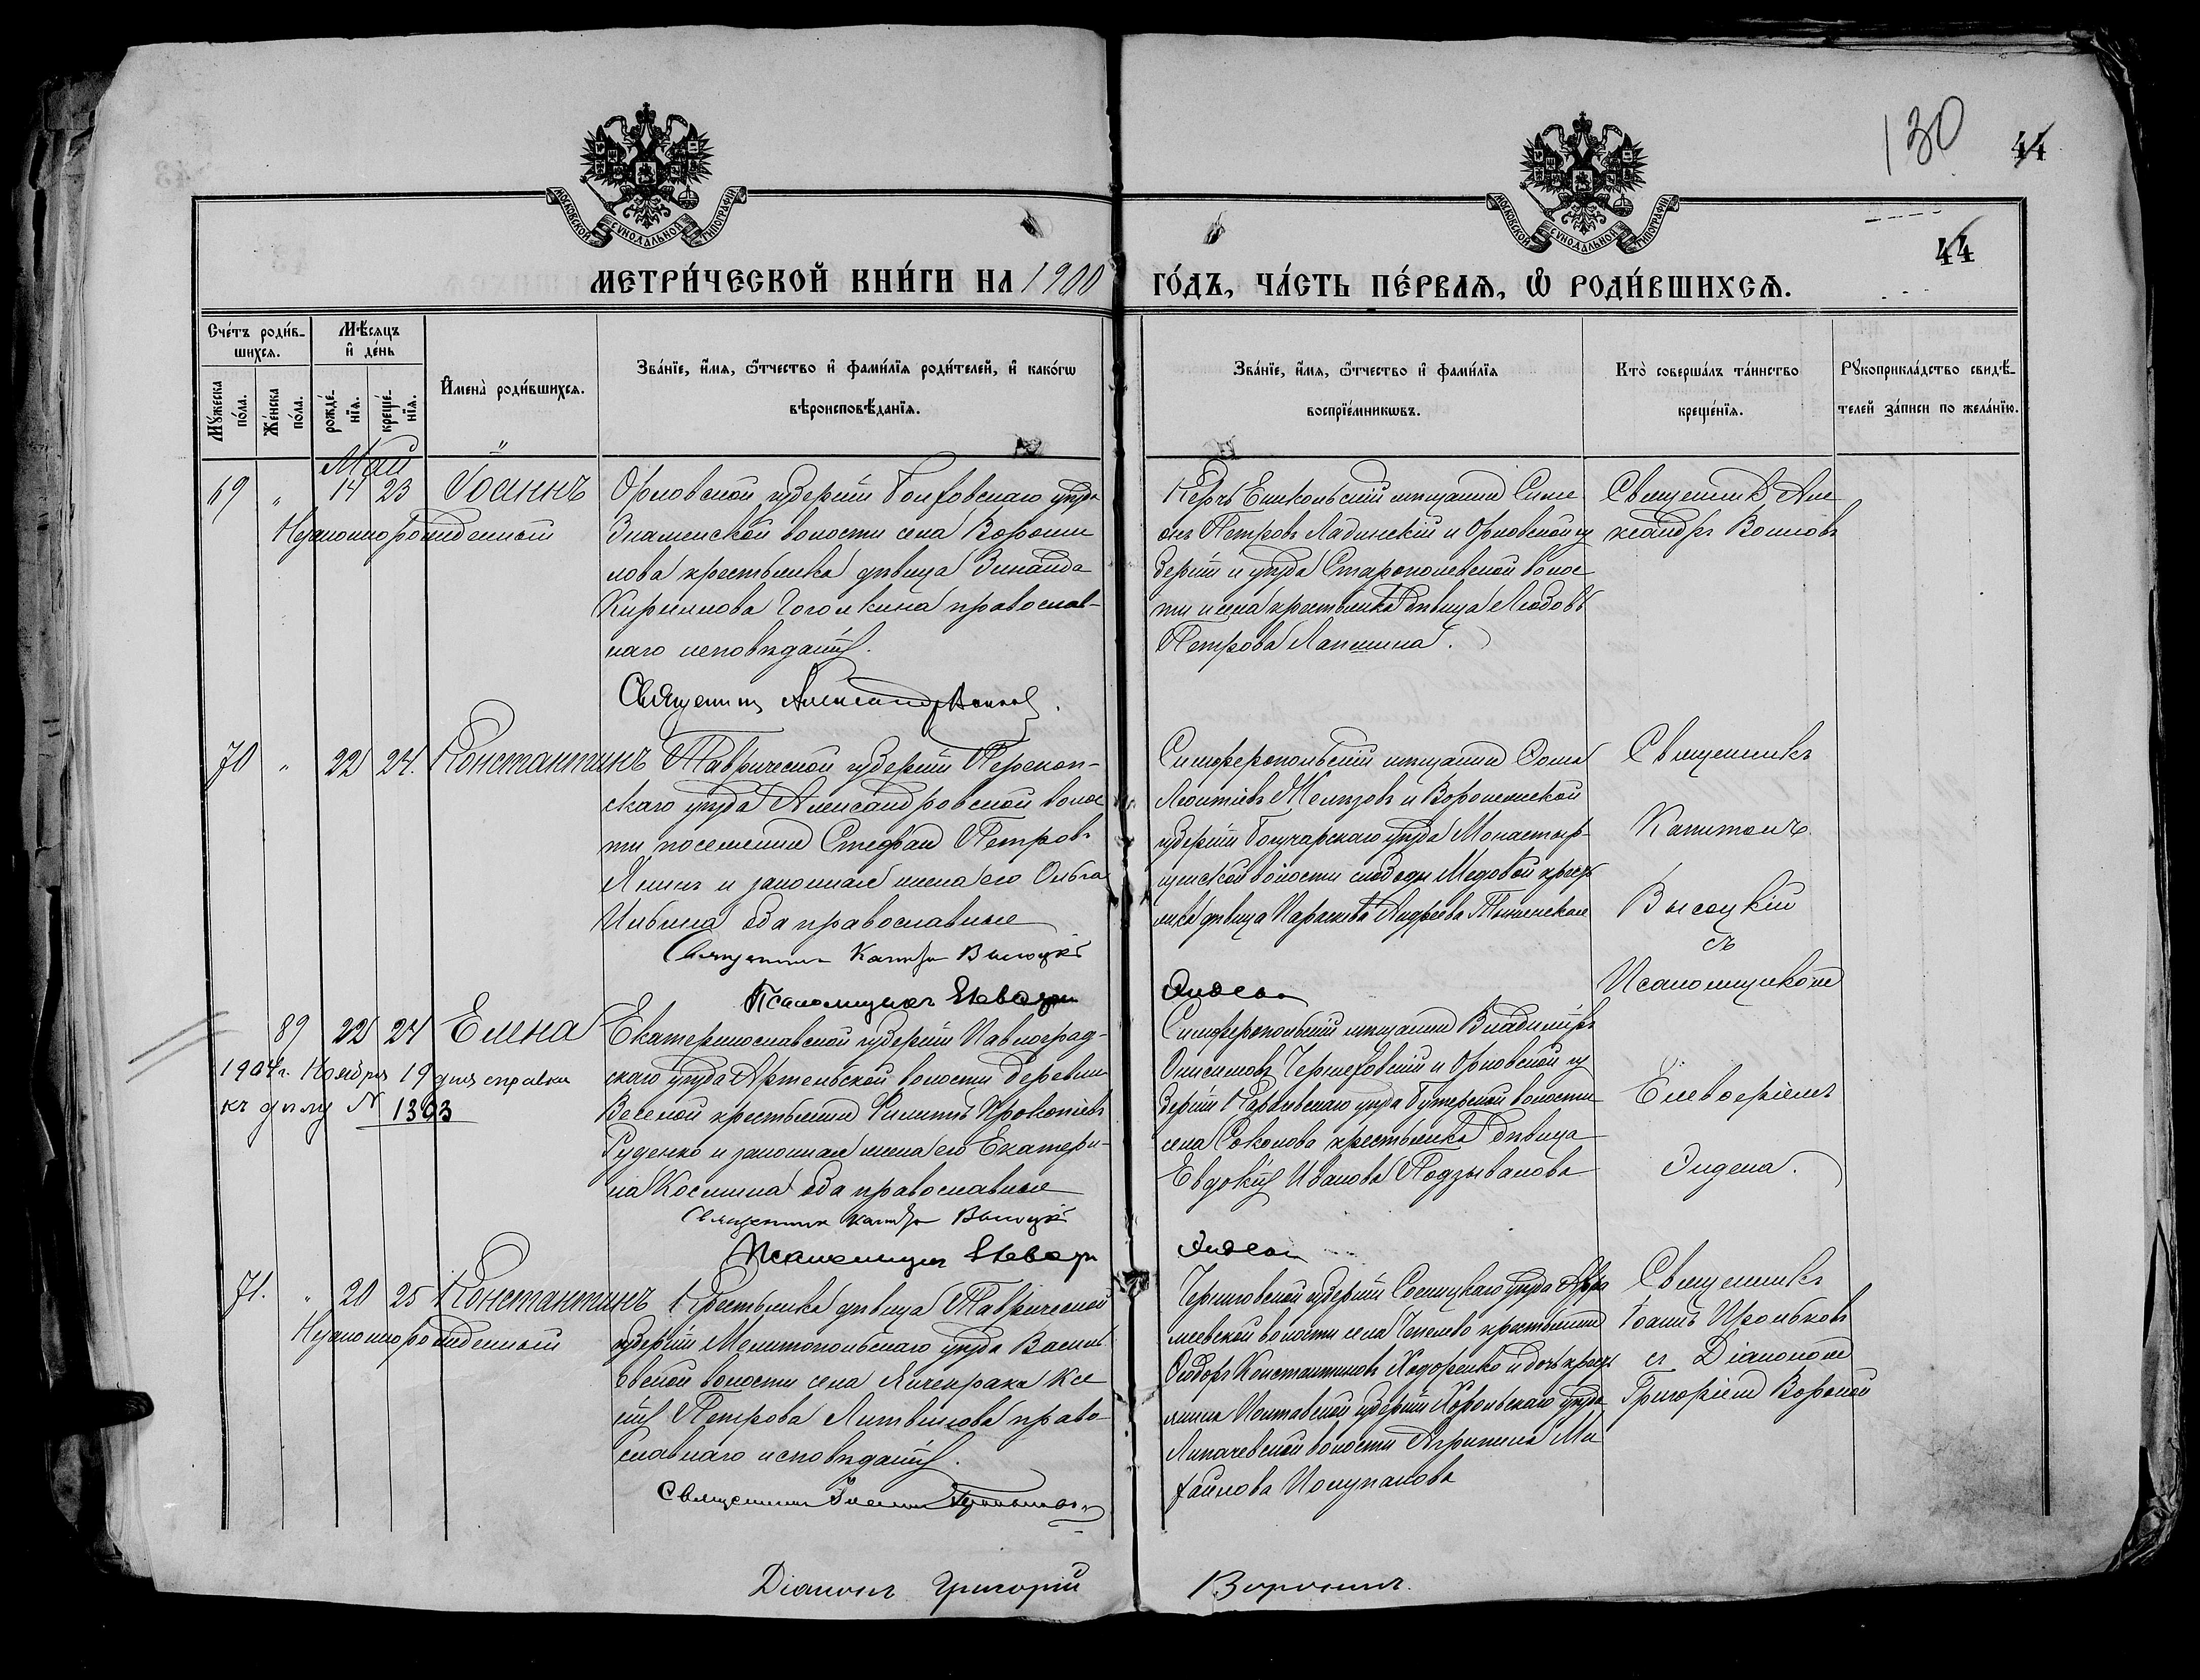 130
44
МОСКОВСКОЙ СѴНОДАЛЬНОЙ ТИПОГРАФІИ
МОСКОВСКОЙ СѴНОДАЛЬНОЙ ТИПОГРАФІИ
44
МЕТРИ́ЧЕСКОЙ КНИ́ГИ НА 1900 ГО́ДЪ, ЧА́СТЬ ПЕ́РВАѦ, Ѡ РОДИ́ВШИХСѦ.
Сче́тъ роди́в-
шихсѧ.
Мѣ́сѧцъ
и҆ де́нь
Му́жеска по́ла.
Же́нска по́ла.
рожде́-
нїѧ.
креще́-
нїѧ.
И҆мена̀ роди́вшихсѧ.
Зва́нїе, и҆́мѧ, ѻ҆́тчество и҆ фами́лїѧ роди́телей, и҆ како́гѡ
вѣроисповѣ́данїѧ.
Зва́нїе, и҆́мѧ, ѻ҆́тчество и҆ фами́лїѧ
воспрїе́мникѡвъ.
Кто̀ соверша́лъ та́инство
креще́нїѧ.
Рꙋкоприкла́дство свидѣ́-
телей за́писи по жела́нїю.
Май
69 " 14 23 Іоаннъ
Незаконнорожденный
Орловской губерніи Болховскаго уѣзда
Знаменской волости села Вороши
лова крестьянка дѣвица Зинаида
Кириллова Гоголкина православ-
наго исповѣданія.
Священникъ Александръ Воиновъ
Керчь Еникольскій мѣщанинъ Симе
онъ Петровъ Ладинскій и Орловской гу
берніи и уѣзда Старопольевской волос
ти и села крестьянка дѣвица Любовь
Петрова Лапшина.
Священникъ Але
ксандръ Воиновъ
70 " 22 24. Константинъ
Таврической губерніи Перекоп-
скаго уѣзда Александровской волос
ти поселянинъ Стефанъ Петровъ
Яншъ и законная жена его Ольга
оба православные
Священникъ Капитонъ Высоцкій
Псаломщикъ Елевферій
Симферопольскій мѣщанинъ Фома
Леонтіевъ Желѣзовъ и Воронежской
губерніи Богучарскаго уѣзда Монастыр-
щенской волости слободы Медовой крестья
нка дѣвица Параскева Андреева
Эндека
Священникъ
Капитонъ
Высоцкій
съ
Псаломщикомъ
89 22 24 Елена
1904 г. Ноября 19 дня справка
къ дѣлу № 1303
Екатеринославской губерніи Павлоград-
скаго уѣзда Артельской волости деревни
Веселой крестьянинъ Филиппъ Прокопіевъ
Руденко и законная жена его Екатери-
на Космина оба православные
Священникъ Капитонъ Высоцкій
Псаломщикъ Елевферій
Симферопольскій мѣщанинъ Владиміръ
Онисимовъ Черняховскій и Орловской гу
берніи Карачевскаго уѣзда Бутерской волости
села Соколова крестьянка дѣвица
Евдокія Иванова Подзывалова
Эндека
Елевферіемъ
Эндека.
71. " 20 25 Константинъ
Незаконнорожденный
Крестьянка дѣвица Таврической
губерніи Мелитопольскаго уѣзда Василь
евской волости села Янчекрака Ксе
нія Петрова Литвинова право-
славнаго исповѣданія.
Священникъ Іоаннъ
Черниговской губерніи Сосницкаго уѣзда
волости села крестьянинъ
Ѳеодоръ Константиновъ Ходоренко и дочь кресть
янина Полтавской губерніи Хорольскаго уѣзда
волости Агрипина Ми
хайлова
Священникъ
Іоаннъ
съ Діакономъ
Григоріемъ
Діаконъ Григорій